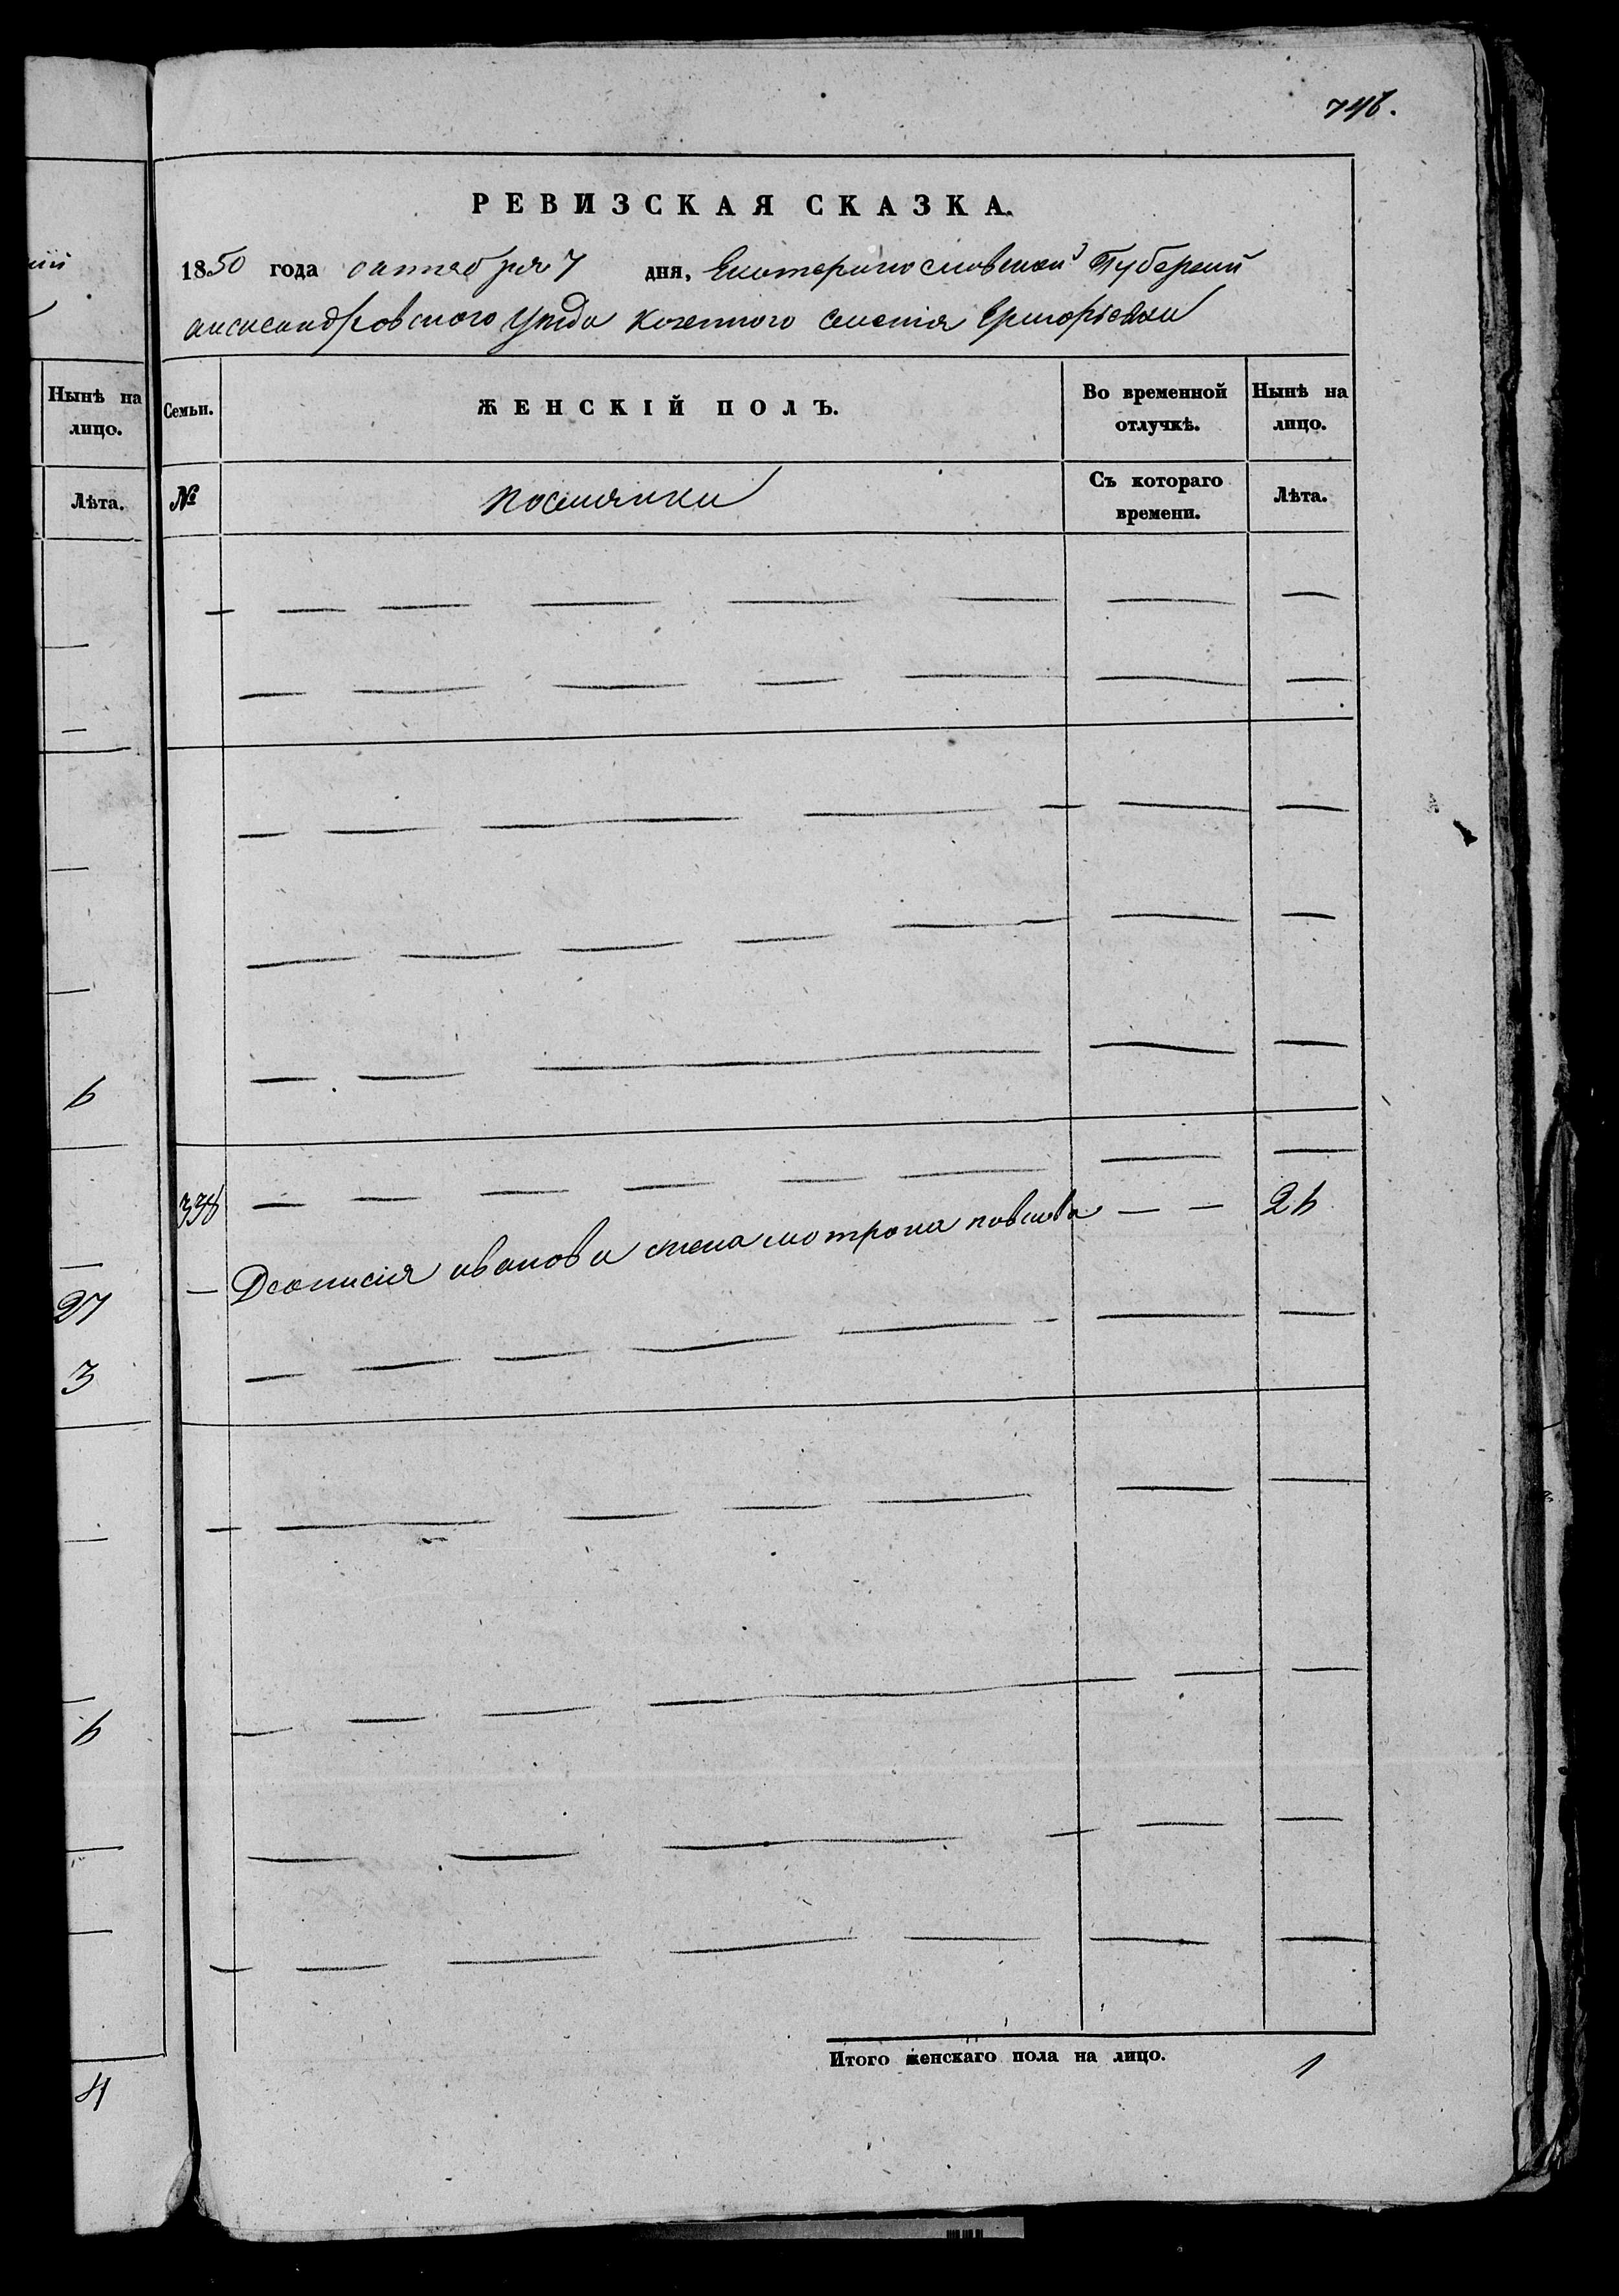 746.
ній
РЕВИЗСКАЯ СКАЗКА.
1850 года октября 7 дня, Екатеринославской Губерніи
александровского уезда казенного селенія Григорьевки
Нынѣ на лицо.
Семьи.
ЖЕНСКІЙ ПОЛЪ.
Во временной отлучкѣ.
Нынѣ на лицо.
Лѣта.
№
поселянки
Съ котораго времени.
Лѣта.
6
338
— Деонисія иванова жена мотрона павлова — — 26
27
3
6
Итого женскаго пола на лицо. 1
4